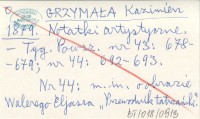 GRZYMAŁA Kazimierz
1879. Notatki artystyczne.
- Tyg. Powsz. nr 43: 678-
-679; nr 44: 692-693.
Nr 44: m.in. o obrazie
Walerego Eljasza „Przewodnik tatrzański".
BT/018/0913